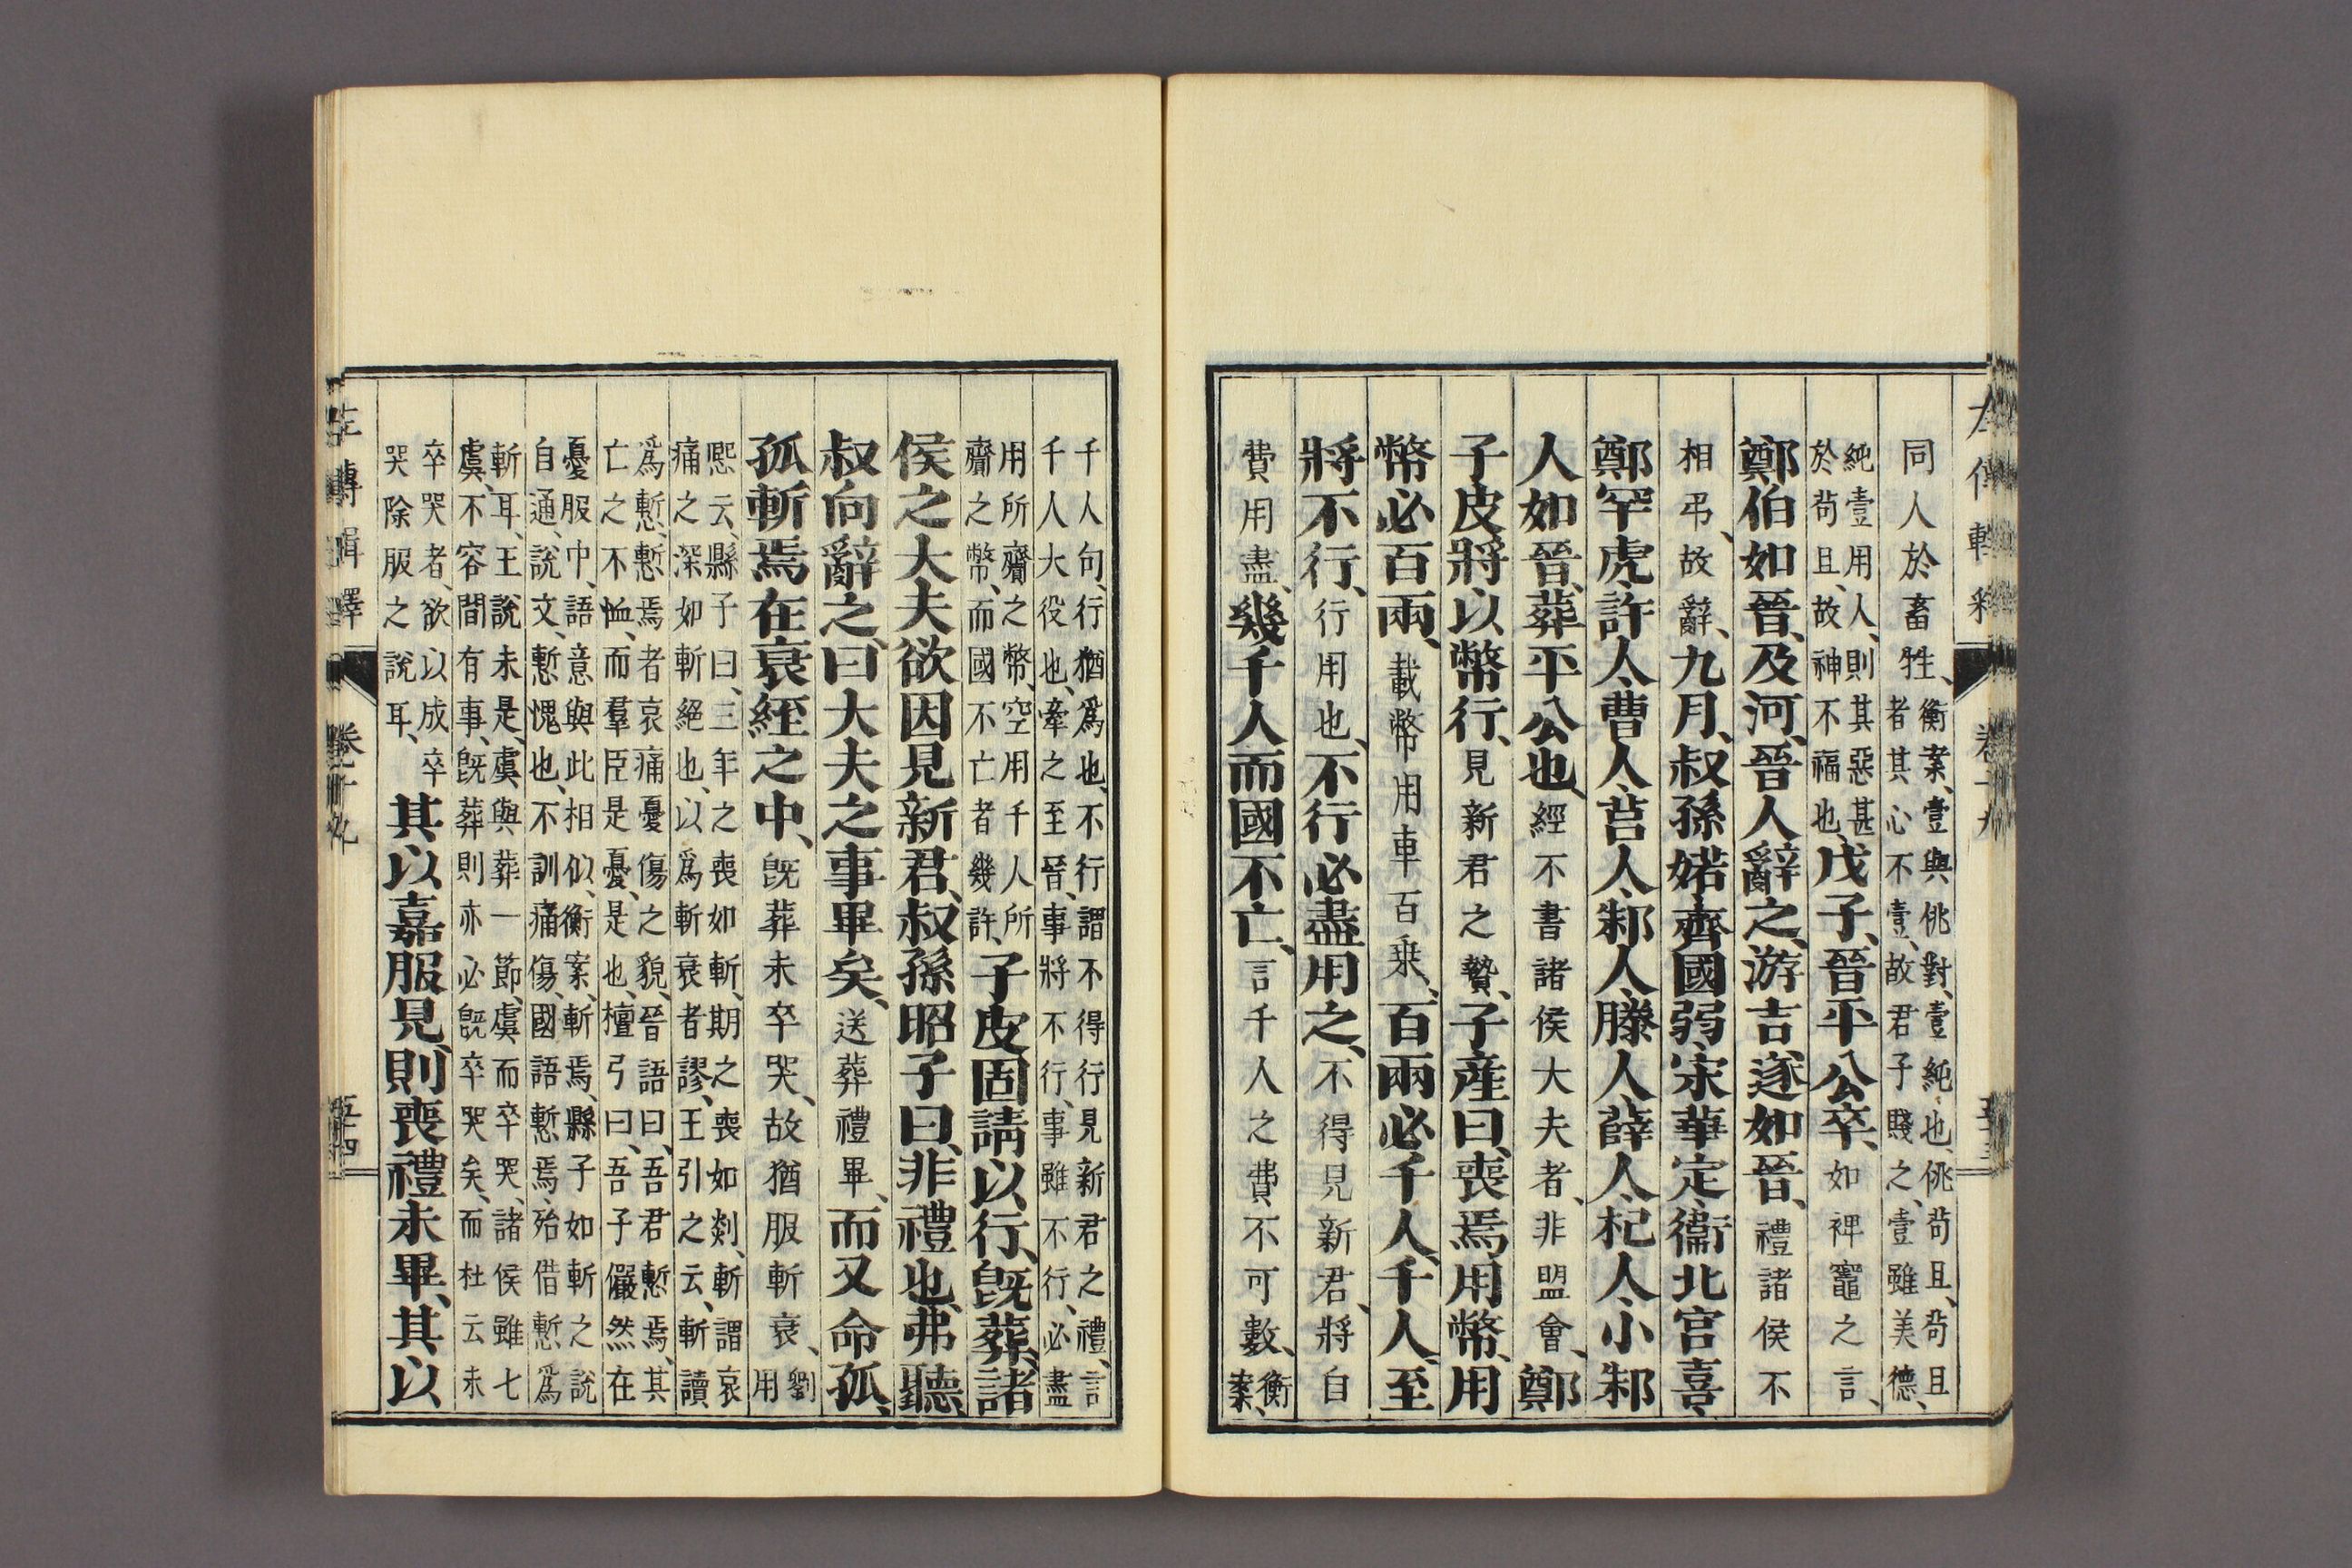 同人於畜牲、衡案、壹與佻對、壹純也、佻苟且、苟且
者其心不壹、故君子賤之、壹雖美德、
純壹用人、則其惡甚
於苟且、故神不福也、戊子、晉平公卒、如裨竈之言、
鄭伯如晉、及河、晉人辭之、游吉遂如晉、禮諸侯不
相弔、故辭、九月、叔孫婼齊國弱、宋華定、衞北宮喜、
鄭罕虎、許人、曹人、莒人、邾人、滕人、薛人、杞人、小邾
人如晉、葬平公也、經不書諸侯大夫者、非盟會、鄭
子皮將以幣行、見新君之贄、子產曰、喪焉用幣、用
幣必百兩、載幣用車百乘、百兩必千人、千人、至
將不行、行用也、不行必盡用之、不得見新君、將自
費用盡、幾千人而國不亡、言千人之費不可數、衡
案、
千人句、行猶爲也、不行謂不得行見新君之禮、言
千人大役也、牽之至晉、事將不行、事雖不行、必盡
用所齎之幣、空用千人所
齎之幣、而國不亡者幾許、子皮固請以行、旣葬、諸
侯之大夫欲因見新君、叔孫昭子曰、非禮也、弗聽、
叔向辭之、曰大夫之事畢矣、送葬禮畢、而又命孤、
孤斬焉在衰絰之中、旣葬未卒哭、故猶服斬衰、劉
用
熙云、縣子曰、三年之喪如斬、期之喪如剡、斬謂哀
痛之深如斬絕也、以爲斬衰者謬、王引之云、斬讀
爲慙、慙焉者哀痛憂傷之貌、晉語曰、吾君慙焉、其
亡之不恤、而羣臣是憂、是也、檀弓曰、吾子儼然在
憂服中、語意與此相似、衡案、斬焉、縣子如斬之說
自通、說文、慙愧也、不訓痛傷、國語慙焉、殆借慙爲
斬耳、王說未是、虞與葬一節、虞而卒哭、諸侯雖七
虞、不容間有事、旣葬則亦必旣卒哭矣、而杜云未
卒哭者、欲以成卒
哭除服之說耳、其以嘉服見、則喪禮未畢、其以
左傳輯釋 卷十九 五十四